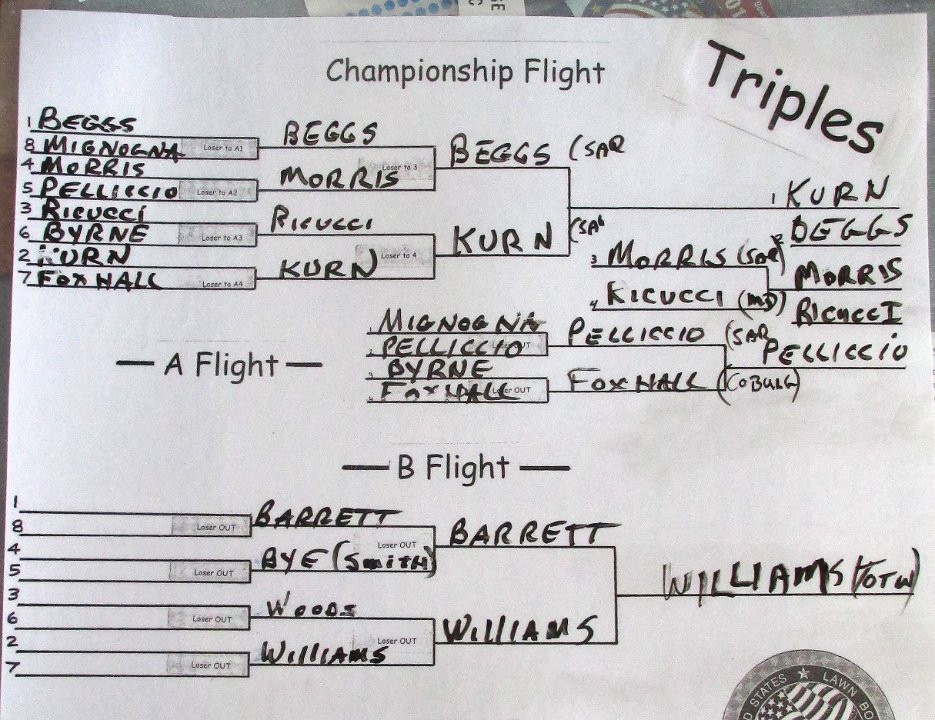 Triples
Championship Flight
1 BEGGS
8 MIGNOGNA Loser to A1
4 MORRIS
5 PELLICCIO Loser to A2
3 RICUCCI
6 BYRNE Loser to A3
2 KURN
7 FOXHALL Loser to A4
BEGGS
MORRIS Loser to 3
RICUCCI
KURN Loser to 4
BEGGS (SAR
KURN (SAR
1 KURN
2 BEGGS
3 MORRIS (SAR)
4 RICUCCI (MD)
MORRIS
RICUCCI
A Flight
1 MIGNOGNA
2 PELLICCIO OUT
3 BYRNE
4 FOXHALL Loser OUT
PELLICCIO (SAR
FOXHALL (COBURG)
PELLICCIO
B Flight
1
8 Loser OUT
4
5 Loser OUT
3
6 Loser OUT
2
7 Loser OUT
BARRETT
BYE (SMITH) Loser OUT
WOODS
WILLIAMS Loser OUT
BARRETT
WILLIAMS
WILLIAMS (TOTW)
STATES ★ LAWN BO